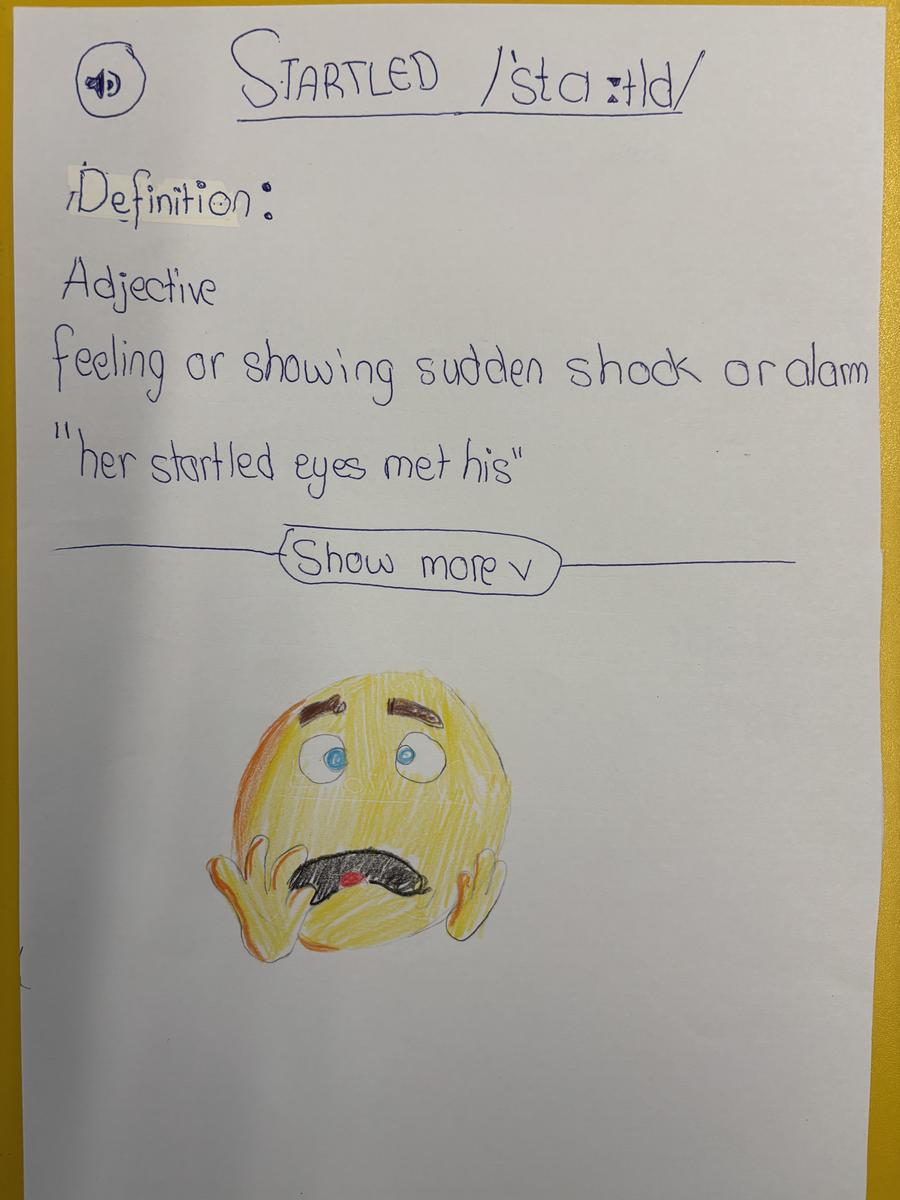 STARTLED /'sta:tld/
Definition:
Adjective
feeling or showing sudden shock or alarm
"her startled eyes met his"
Show more v